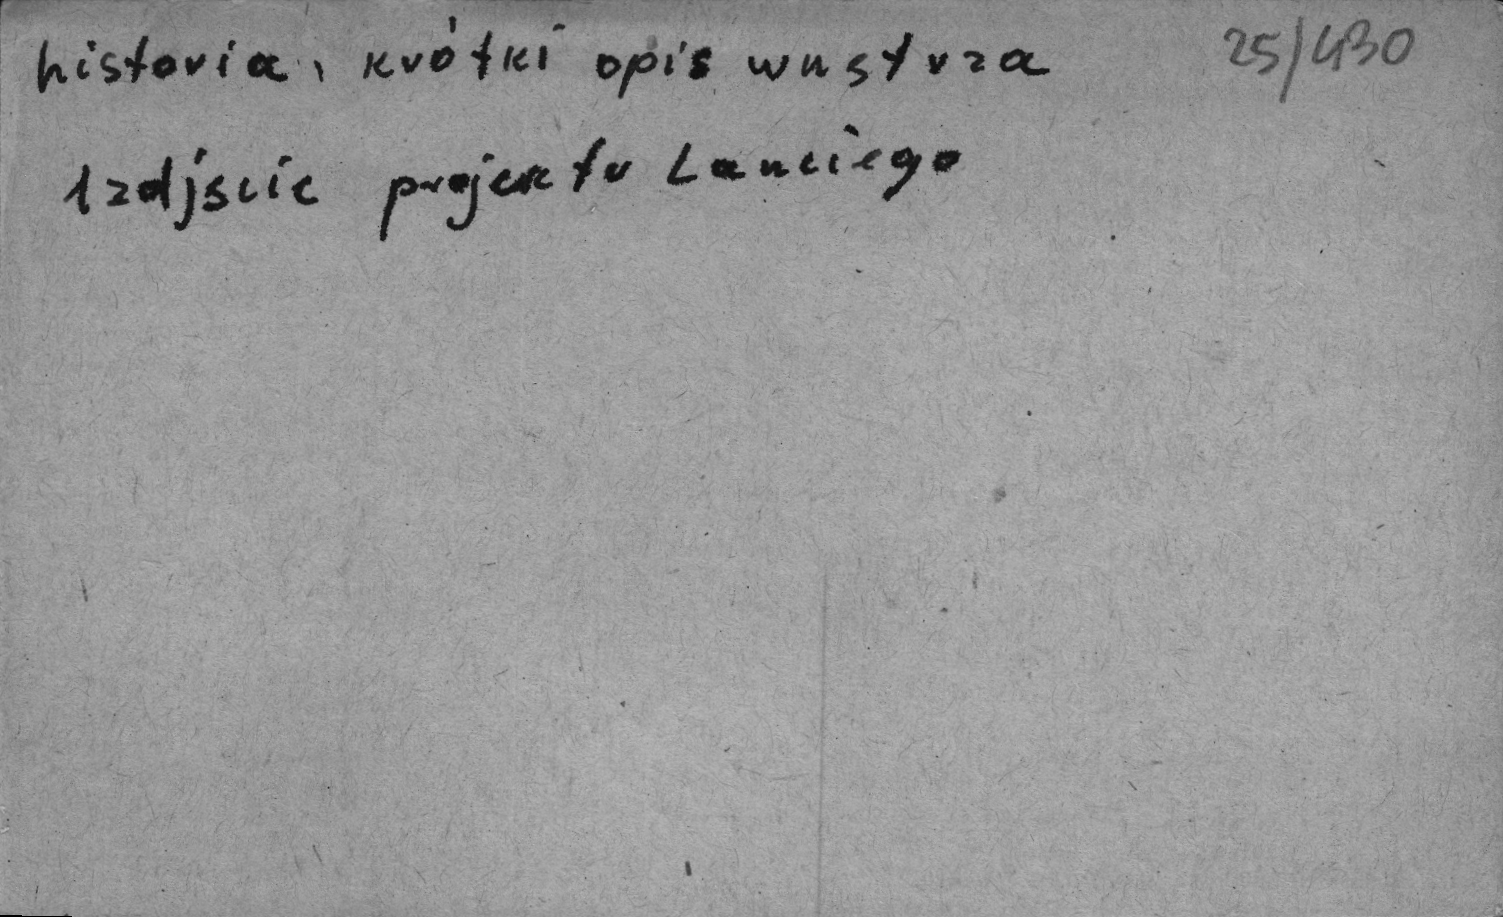 historia, krótki opis wnętrza 25/430
1 zdjęcie projektu Lanciego